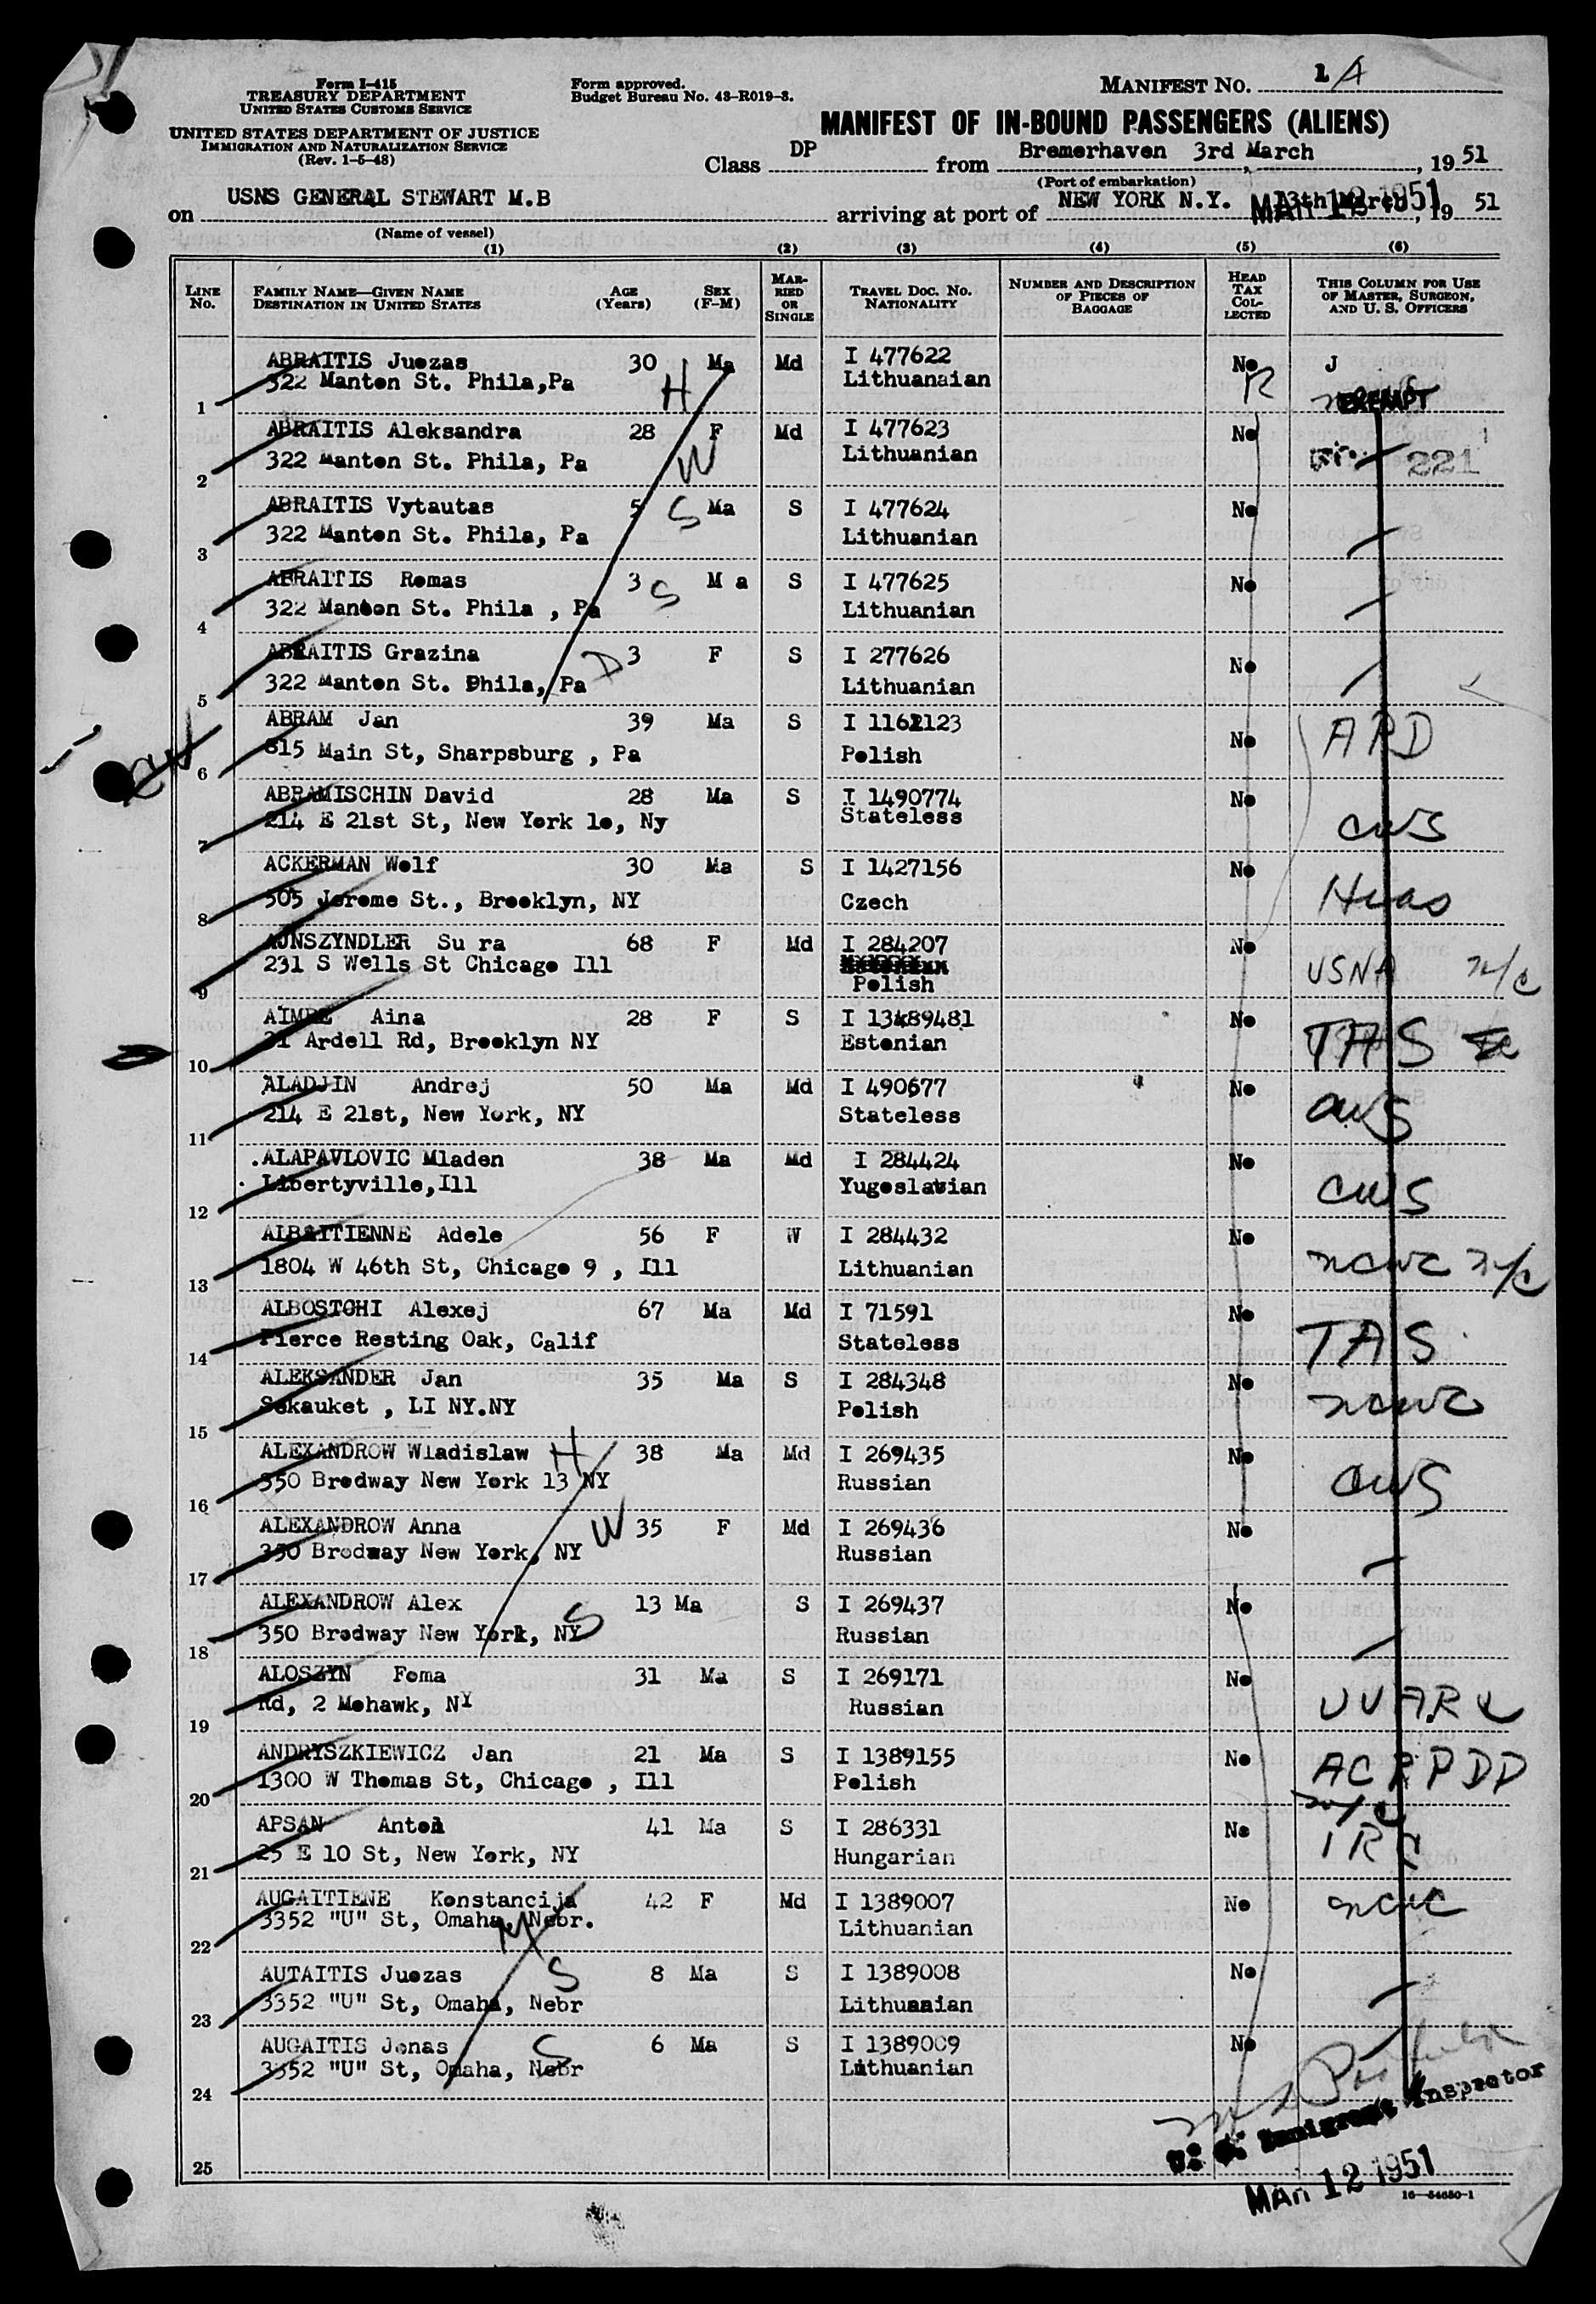 Form I-415
TREASURY DEPARTMENT
UNITED STATES CUSTOMS SERVICE
UNITED STATES DEPARTMENT OF JUSTICE
IMMIGRATION AND NATURALIZATION SERVICE
(Rev. 1-5-48)
Form approved.
Budget Bureau No. 43-R019-3.
MANIFEST NO. 1 A
MANIFEST OF IN-BOUND PASSENGERS (ALIENS)
Class DP from Bremerhaven 3rd March, 19 51
(Port of embarkation)
on USNS GENERAL STEWART M.B arriving at port of NEW YORK N.Y. 13th March, 19 51
MAR 12 1951
(Name of vessel)
(1) (2) (3) (4) (5) (6)
LINE No. FAMILY NAME—GIVEN NAME DESTINATION IN UNITED STATES AGE (Years) SEX (F-M) MARRIED OR SINGLE TRAVEL DOC. NO. NATIONALITY NUMBER AND DESCRIPTION OF PIECES OF BAGGAGE HEAD TAX COLLECTED THIS COLUMN FOR USE OF MASTER, SURGEON, AND U. S. OFFICERS
ABRAITIS Juozas 30 Ma Md I 477622 No J
1 322 Manton St. Phila,Pa H Lithuanaian R EXEMPT
ABRAITIS Aleksandra 28 F Md I 477623 No
2 322 Manton St. Phila, Pa W Lithuanian 221
ABRAITIS Vytautas 5 S Ma S I 477624 No
3 322 Manton St. Phila, Pa Lithuanian
ABRAITIS Romas 3 S M a S I 477625 No
4 322 Manton St. Phila , Pa Lithuanian
ABRAITIS Grazina D 3 F S I 277626 No
5 322 Manton St. Phila, Pa Lithuanian
ABRAM Jan 39 Ma S I 1162123 No APD
6 815 Main St, Sharpsburg , Pa Polish
ABRAMISCHIN David 28 Ma S I 1490774 No
7 214 E 21st St, New York 1o, Ny Stateless CWS
ACKERMAN Wolf 30 Ma S I 1427156 No
8 505 Jerome St., Brooklyn, NY Czech Hias
AJNSZYNDLER Su ra 68 F Md I 284207 No
9 231 S Wells St Chicago Ill Polish USNA n/c
AIMRE Aina 28 F S I 13489481 No
10 Ardell Rd, Brooklyn NY Estonian TAS
ALADJIN Andrej 50 Ma Md I 490677 No
11 214 E 21st, New York, NY Stateless CWS
ALAPAVLOVIC Mladen 38 Ma Md I 284424 No
12 Libertyville,Ill Yugoslavian CWS
ALBAITIENNE Adele 56 F W I 284432 No
13 1804 W 46th St, Chicago 9 , Ill Lithuanian NCWC n/c
ALBOSTCHI Alexej 67 Ma Md I 71591 No
14 Pierce Resting Oak, Calif Stateless TAS
ALEKSANDER Jan 35 Ma S I 284348 No
15 Sekauket , LI NY.NY Polish NCWC
ALEXANDROW Wladislaw H 38 Ma Md I 269435 No
16 350 Brodway New York 13 NY Russian CWS
ALEXANDROW Anna W 35 F Md I 269436 No
17 350 Brodway New York, NY Russian
ALEXANDROW Alex 13 Ma S I 269437 No
18 350 Brodway New York, NY S Russian
ALOSZYN Foma 31 Ma S I 269171 No
19 Rd, 2 Mohawk, NY Russian UUARC
ANDRYSZKIEWICZ Jan 21 Ma S I 1389155 No
20 1300 W Thomas St, Chicago , Ill Polish ACRPDP
APSAN Anton 41 Ma S I 286331 No n/c
21 25 E 10 St, New York, NY Hungarian IRC
AUGAITIENE Konstancija 42 F Md I 1389007 No NCWC
22 3352 "U" St, Omaha, Nebr. M Lithuanian
AUTAITIS Juozas S 8 Ma S I 1389008 No
23 3352 "U" St, Omaha, Nebr Lithuanian
AUGAITIS Jonas S 6 Ma S I 1389009 No
24 3352 "U" St, Omaha, Nebr Lithuanian
U. S. Immigrant Inspector
25
MAR 12 1951
16-54650-1